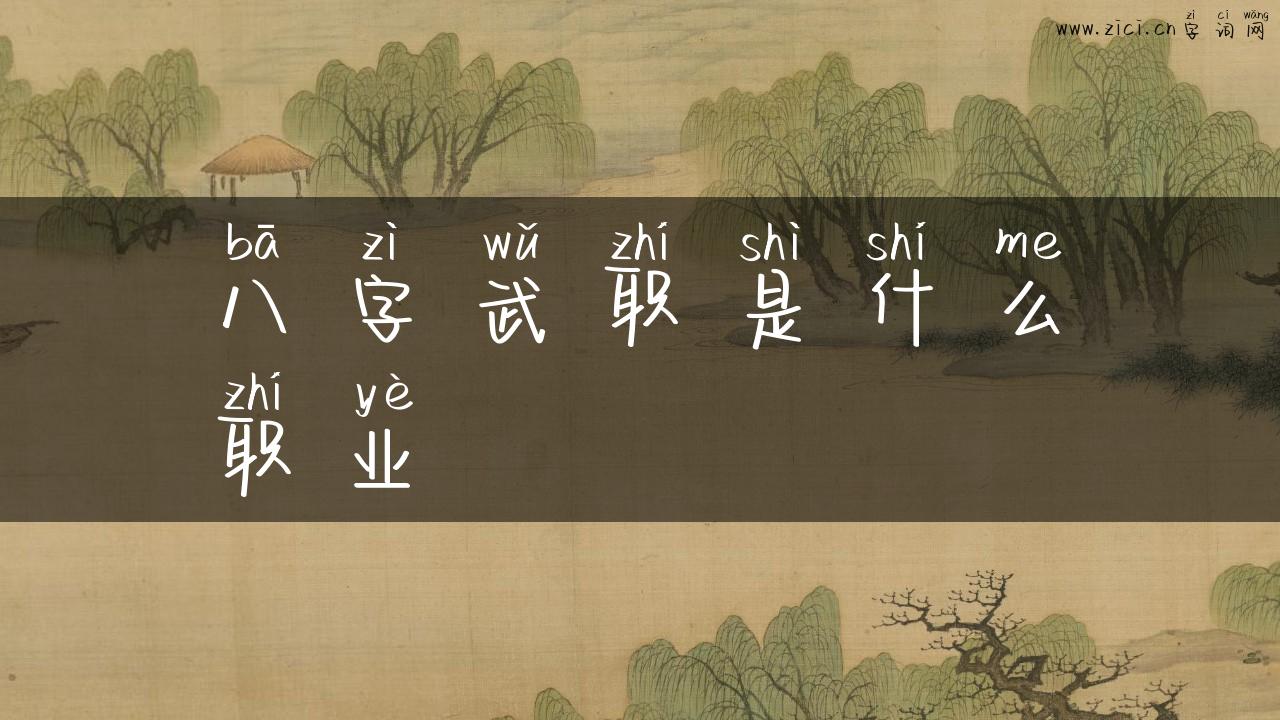 zì cí wǎng
www.zici.cn字词网
bā zì wǔ zhí shì shí me
八字武职是什么
zhí yè
职业